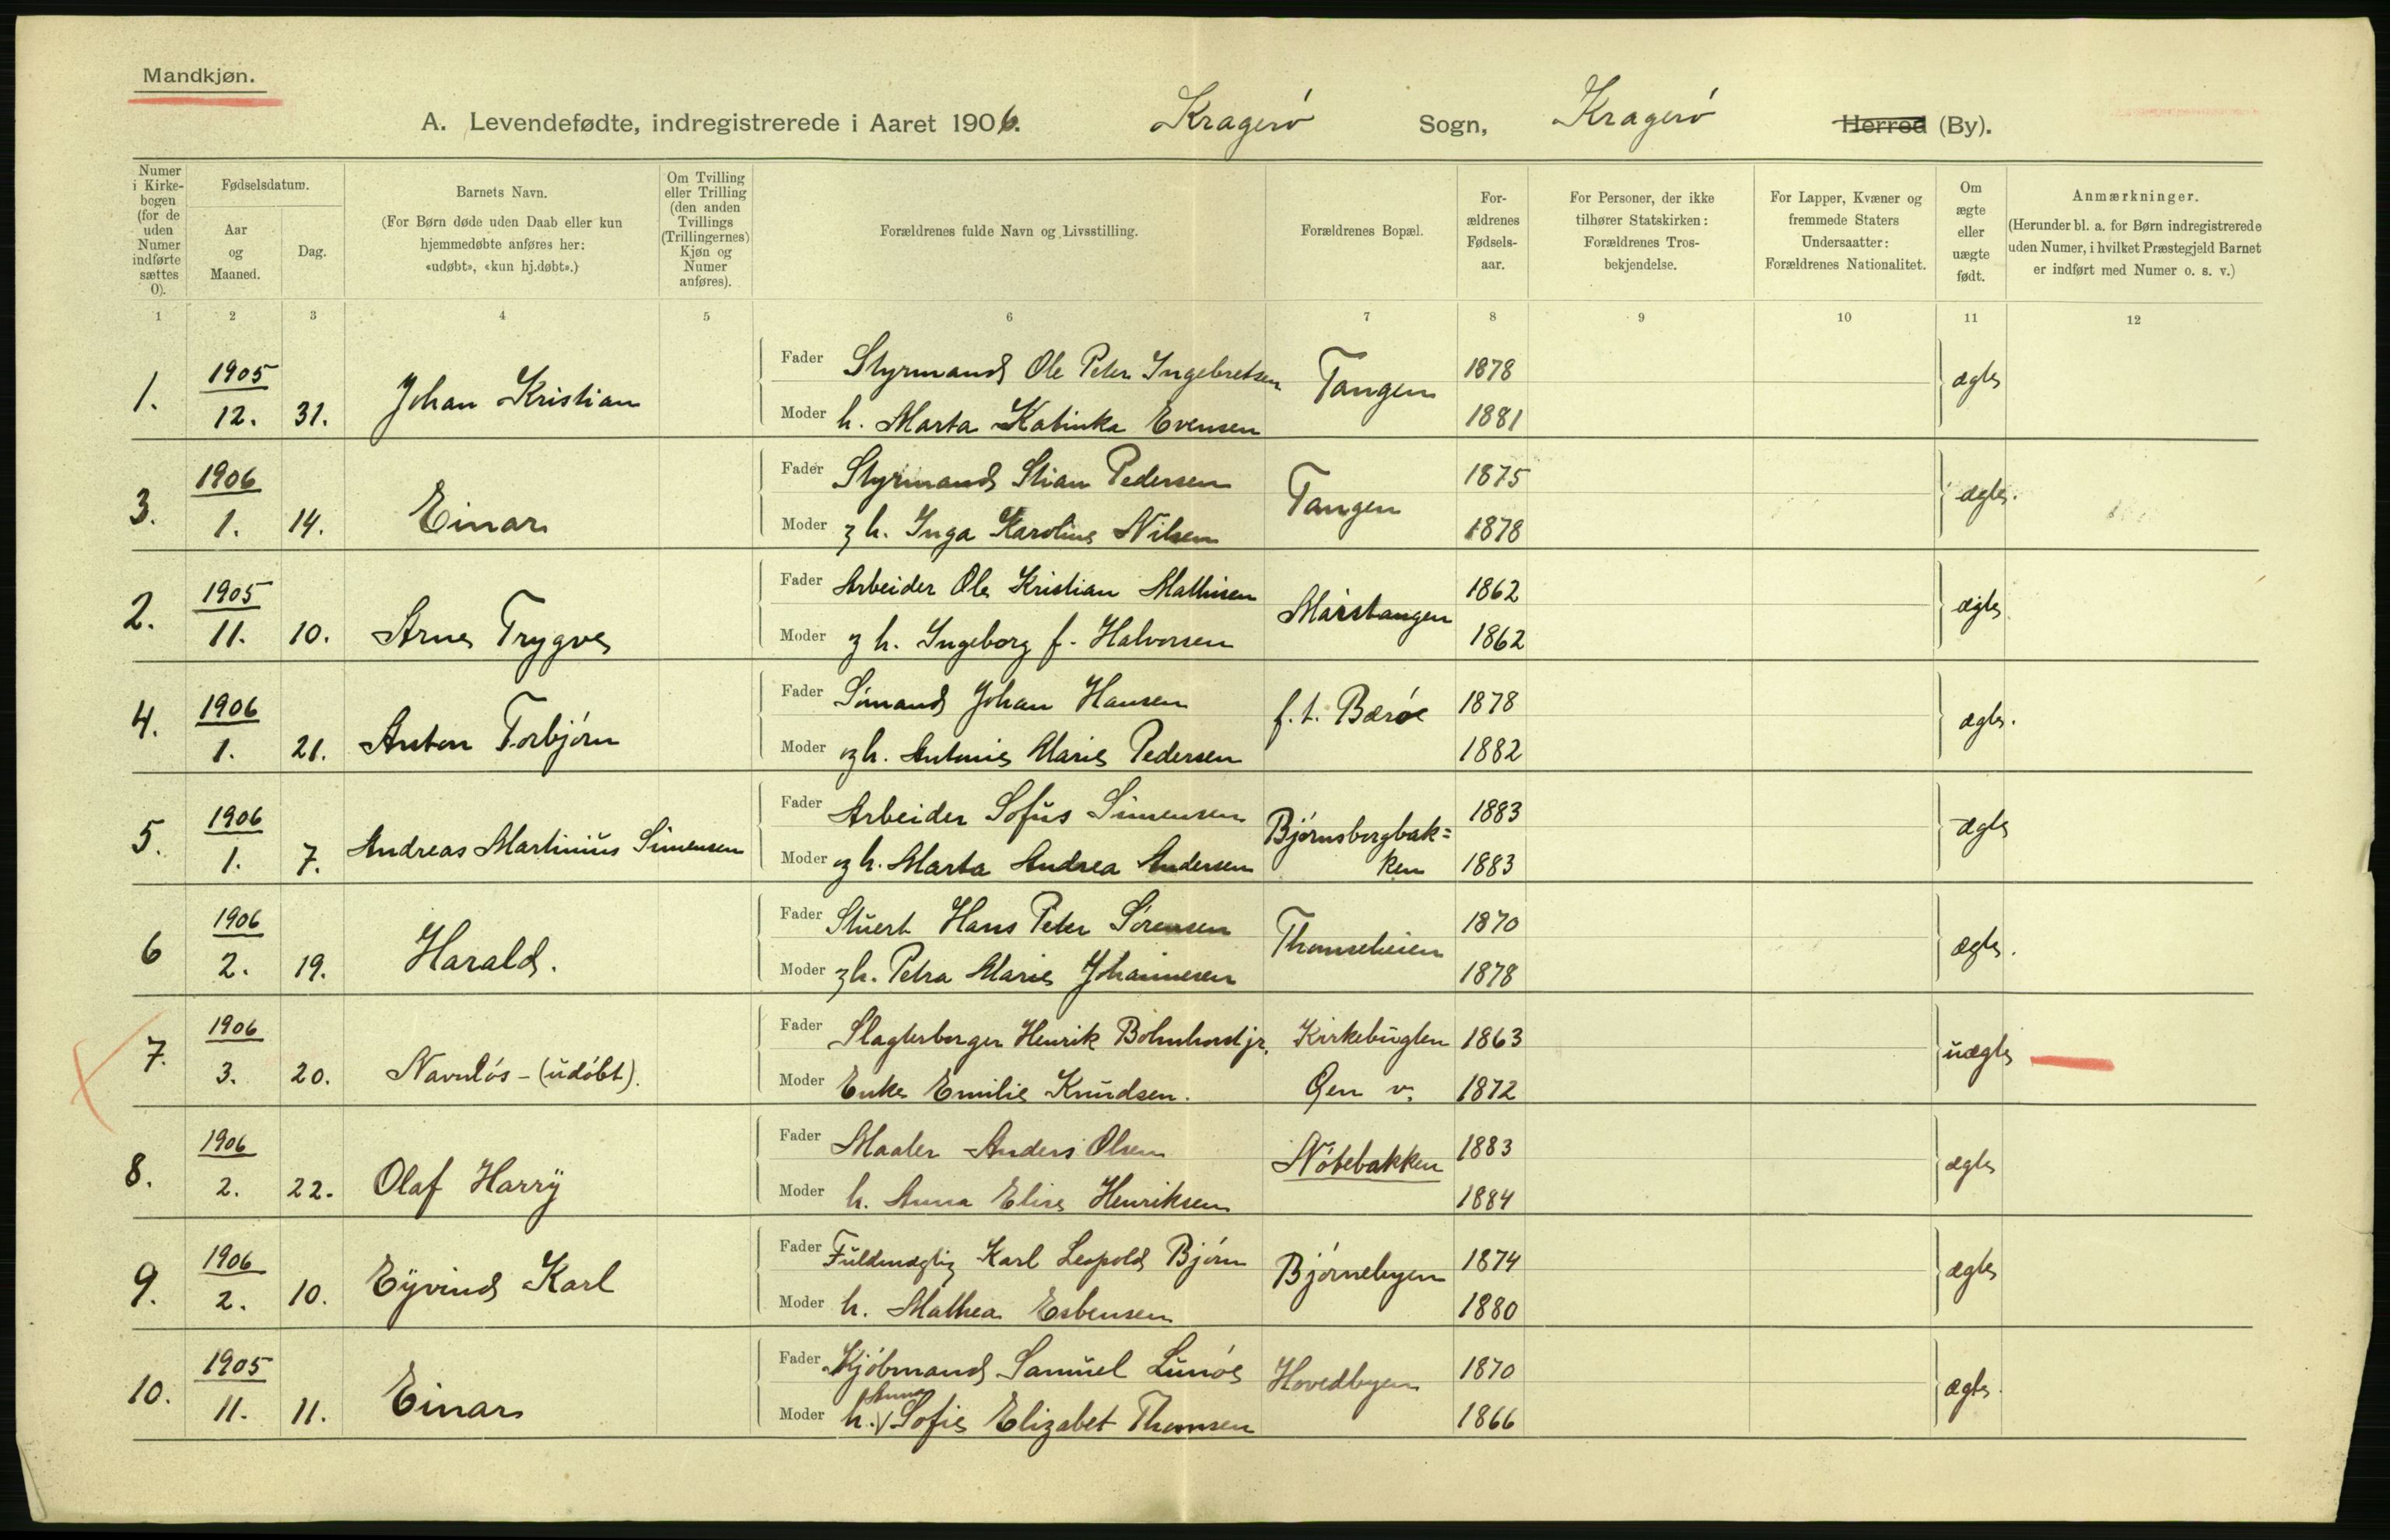 Mandkjøn.
A. Levendefødte, indregistrerede i Aaret 1906. Kragerø Sogn, Kragerø Herred (By).
Numer i Kirke-bogen (for de uden Numer indførte sættes 0).
Fødselsdatum.
Aar og Maaned.
Dag.
Barnets Navn.
(For Børn døde uden Daab eller kun hjemmedøbte anføres her: «udøbt», «kun hj.døbt».)
Om Tvilling eller Trilling (den anden Tvillings (Trillingernes) Kjøn og Numer anføres).
Forældrenes fulde Navn og Livsstilling.
Forældrenes Bopæl.
For-ældrenes Fødsels-aar.
For Personer, der ikke tilhører Statskirken: Forældrenes Tros-bekjendelse.
For Lapper, Kvæner og fremmede Staters Undersaatter: Forældrenes Nationalitet.
Om ægte eller uægte født.
Anmærkninger.
(Herunder bl. a. for Børn indregistrerede uden Numer, i hvilket Præstegjeld Barnet er indført med Numer o. s. v.)
1 2 3 4 5 6 7 8 9 10 11 12
1. 1905 12. 31. Johan Kristian
Fader Styrmand Ole Peter Ingebretsen Tangen 1878 ægte
Moder h. Marta Katinka Evensen 1881
3. 1906 1. 14. Einar
Fader Styrmand Stian Pedersen Tangen 1875 ægte.
Moder og h. Inga Karoline Nilsen 1878
2. 1905 11. 10. Arne Trygve
Fader Arbeider Ole Kristian Mathisen Marstangen 1862 ægte
Moder og h. Ingeborg f. Halvorsen 1862
4. 1906 1. 21. Anton Torbjørn
Fader Sømand Johan Hansen f. t. Bærøe 1878 ægte.
Moder og h. Antonie Marie Pedersen 1882
5. 1906 1. 7. Andreas Martinius Simensen
Fader Arbeider Sofus Simensen Bjørnsbergbak=ken 1883 ægte
Moder og h. Marta Andrea Andersen 1883
6 1906 2. 19. Harald.
Fader Stuert Hans Peter Sørensen Thomseheien 1870 ægte.
Moder og h. Petra Marie Johannesen 1878
7. 1906 3. 20. Navnløs - (udøbt).
Fader Slagterborger Henrik Bolmhorst jr. Kirkebugten 1863 uægte
Moder Enke Emilie Knudsen. Øen v. 1872
8. 1906 2. 22. Olaf Harry
Fader Maaler Anders Olsen Nøtebakken 1883 ægte
Moder h. Anna Elise Henriksen 1884
9. 1906 2. 10. Eyvind Karl
Fader Fuldmægtig Karl Leopold Bjørn Bjørnebyen 1874 ægte
Moder h. Mathea Esbensen 1880
10. 1905 11. 11. Einar
Fader Kjøbmand Samuel Lunøe Hovedbyen 1870 ægte.
Moder h. Anna Sofie Elizabet Thomsen 1866